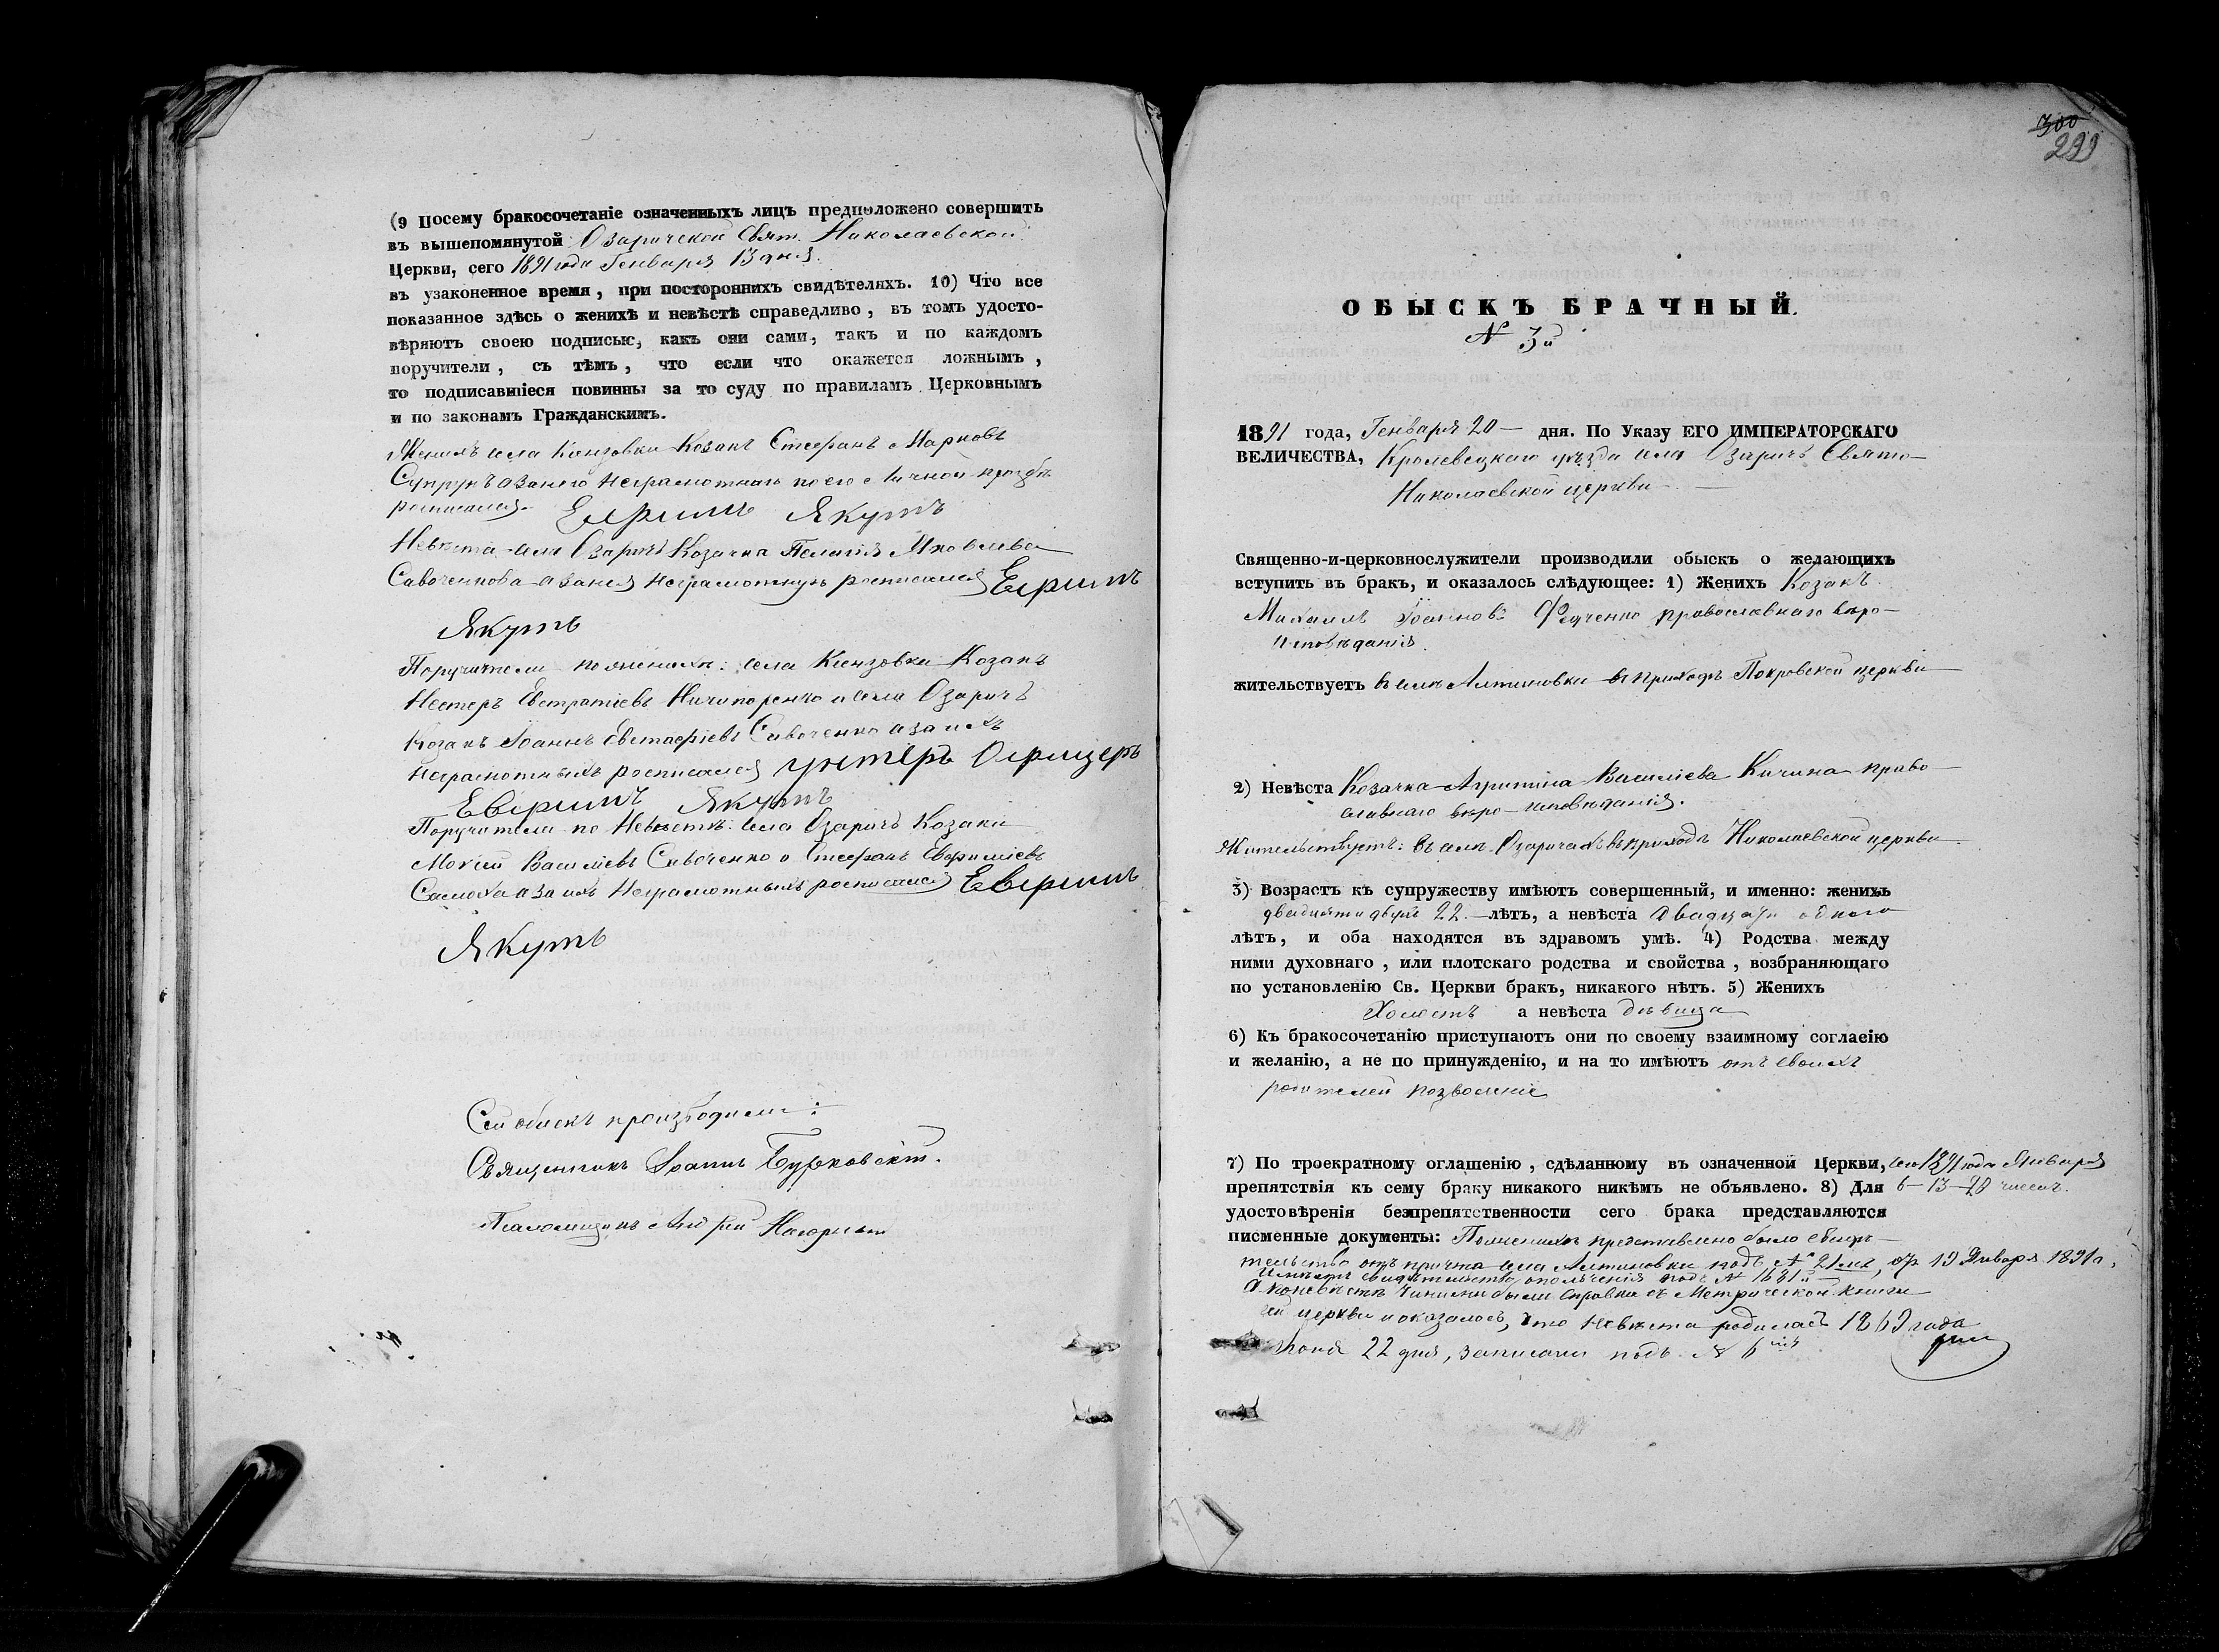 (9 Посему бракосочетаніе означенныхъ лицъ предположено совершить
въ вышепомянутой Озаричской Свят. Николаевской
Церкви, сего 1891 года Генваря 13 дня.
въ узаконенное время, при постороннихъ свидѣтеляхъ. 10) Что все
показанное здѣсь о женихѣ и невѣстѣ справедливо, въ томъ удосто-
вѣряютъ своею подписью, какъ они сами, такъ и по каждомъ
поручители, съ тѣмъ, что если что окажется ложнымъ,
то подписавшіеся повинны за то суду по правиламъ Церковнымъ
и по законамъ Гражданскимъ.
Женихъ села Козакъ Стефанъ Марковъ
Супрунъ а за него неграмотнаго по его личной прозбѣ
росписался Ефримъ Якутъ
Невѣста села Озаричъ Козачка Пелагія Яковлева
Савоченкова а за нея неграмотную росписался Ефримъ
Якутъ
Поручители по женихѣ: села Козакъ
Нестеръ Евстратіевъ Ничипоренко и села Озаричъ
Козакъ Іоаннъ Евстафіевъ Савоченко а за ихъ
неграмотныхъ росписался унтеръ Офицеръ
Евфримъ Якутъ
Поручители по Невѣстѣ: села Озаричъ Козаки
Мокій Василіевъ Савоченко и Стефанъ Евфиміевъ
а за ихъ неграмотныхъ росписался Евфримъ
Якутъ
Сей обискъ производили:
Священникъ Іоаннъ
Псаломщикъ Андрей Нагорный
300
299
ОБЫСКЪ БРАЧНЫЙ.
№ 3й
1891 года, Генваря 20 — дня. По Указу ЕГО ИМПЕРАТОРСКАГО
ВЕЛИЧЕСТВА, Кролевецкаго уѣзда села Озаричъ Свято-
Николаевской церкви —
Священно-и-церковнослужители производили обыскъ о желающихъ
вступить въ бракъ, и оказалось слѣдующее: 1) Женихъ Козакъ
Михаилъ Іоанновъ Федченко православнаго вѣро-
исповѣданія.
жительствуетъ въ селѣ Алтиновки въ приходѣ Покровской церкви
2) Невѣста Козачка Василіева Кичина право-
славнаго вѣро-исповѣданія.
Жительствуетъ: въ селѣ Озаричахъ въ приходѣ Николаевской церкви
3) Возрастъ къ супружеству имѣютъ совершенный, и именно: женихъ
двадцяти двухъ 22.—лѣтъ, а невѣста двадцати одного
лѣтъ, и оба находятся въ здравомъ умѣ. 4) Родства между
ними духовнаго, или плотскаго родства и свойства, возбраняющаго
по установленію Св. Церкви бракъ, никакого нѣтъ. 5) Женихъ
Холостъ а невѣста дѣвица
6) Къ бракосочетанію приступаютъ они по своему взаимному согласію
и желанію, а не по принужденію, и на то имѣютъ отъ своихъ
родителей позволеніе
7) По троекратному оглашенію, сдѣланному въ означенной Церкви, сего 1891 года Января
препятствія къ сему браку никакого никѣмъ не объявлено. 8) Для 6—13—20 чиселъ.
удостовѣренія безпрепятственности сего брака представляются
писменные документы: По женихѣ представлено было свидѣ-
тельство отъ причта села Алтиновки подъ № 21мъ, отъ 19 Января 1891 г.,
Имѣетъ свидѣтельство ополченія подъ №
а по невѣстѣ чинимы были справки съ Метрической книги
сей церкви и оказалось, что невѣста родилась 1869 года
Іюня 22 дня, записана подъ № 6